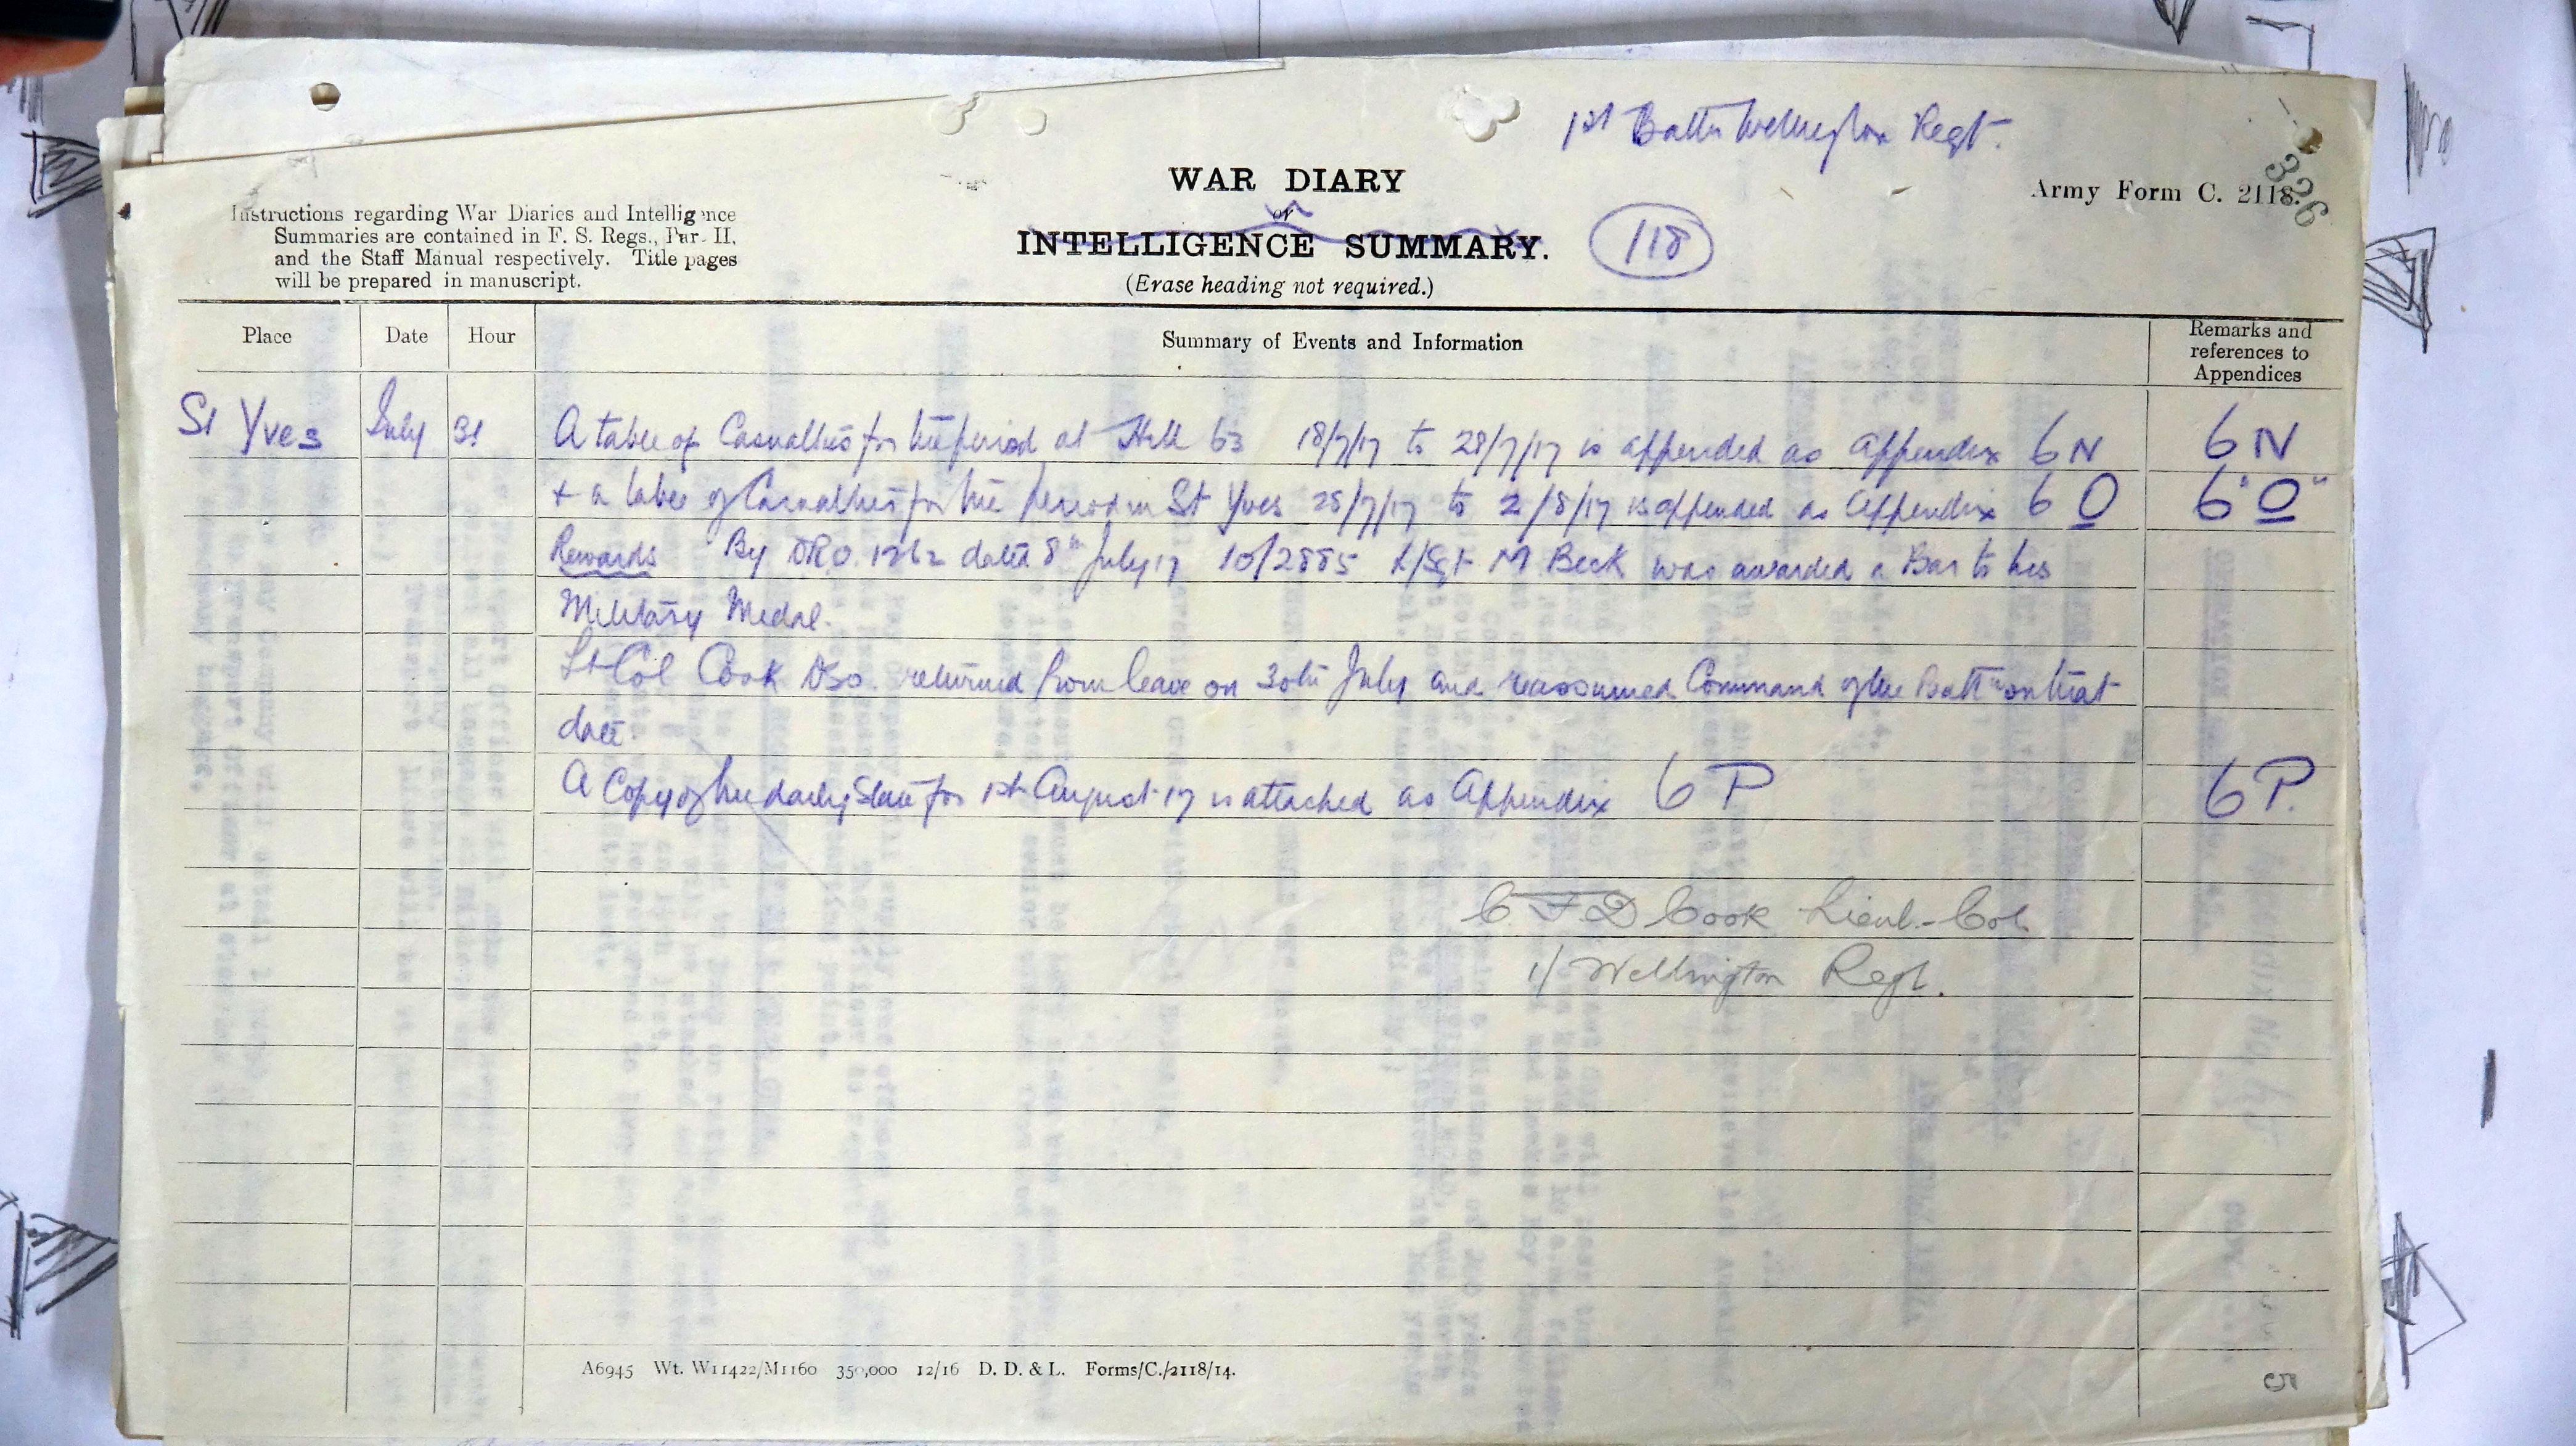 1st Battn Wellington Regt.
326
WAR DIARY
Army Form C. 2118.
or
INTELLIGENCE SUMMARY.
118
(Erase heading not required.)
Instructions regarding War Diaries and Intelligence
Summaries are contained in F. S. Regs., Par. II,
and the Staff Manual respectively. Title pages
will be prepared in manuscript.
Place Date Hour Summary of Events and Information Remarks and
references to
Appendices
St Yves July 31 A table of Casualties for the period at Hill 63 18/7/17 to 28/7/17 is appended as appendix 6 N 6 N
+ a table of Casualties for the period in St Yves 28/7/17 to 2/8/17 is appended as Appendix 6 O 6 "O"
Rewards By DRO. 1262 dated 8th July 17 10/2885 L/Sgt M Beck was awarded a Bar to his
Military Medal.
Lt Col Cook DSO. returned from leave on 30th July and reassumed Command of the Battn on that
date.
A Copy of the daily State for 1st August 17 is attached as Appendix 6 P 6 P.
C F D Cook Lieut.-Col.
1/ Wellington Regt.
A6945 Wt. W11422/M1160 350,000 12/16 D. D. & L. Forms/C./2118/14.
5